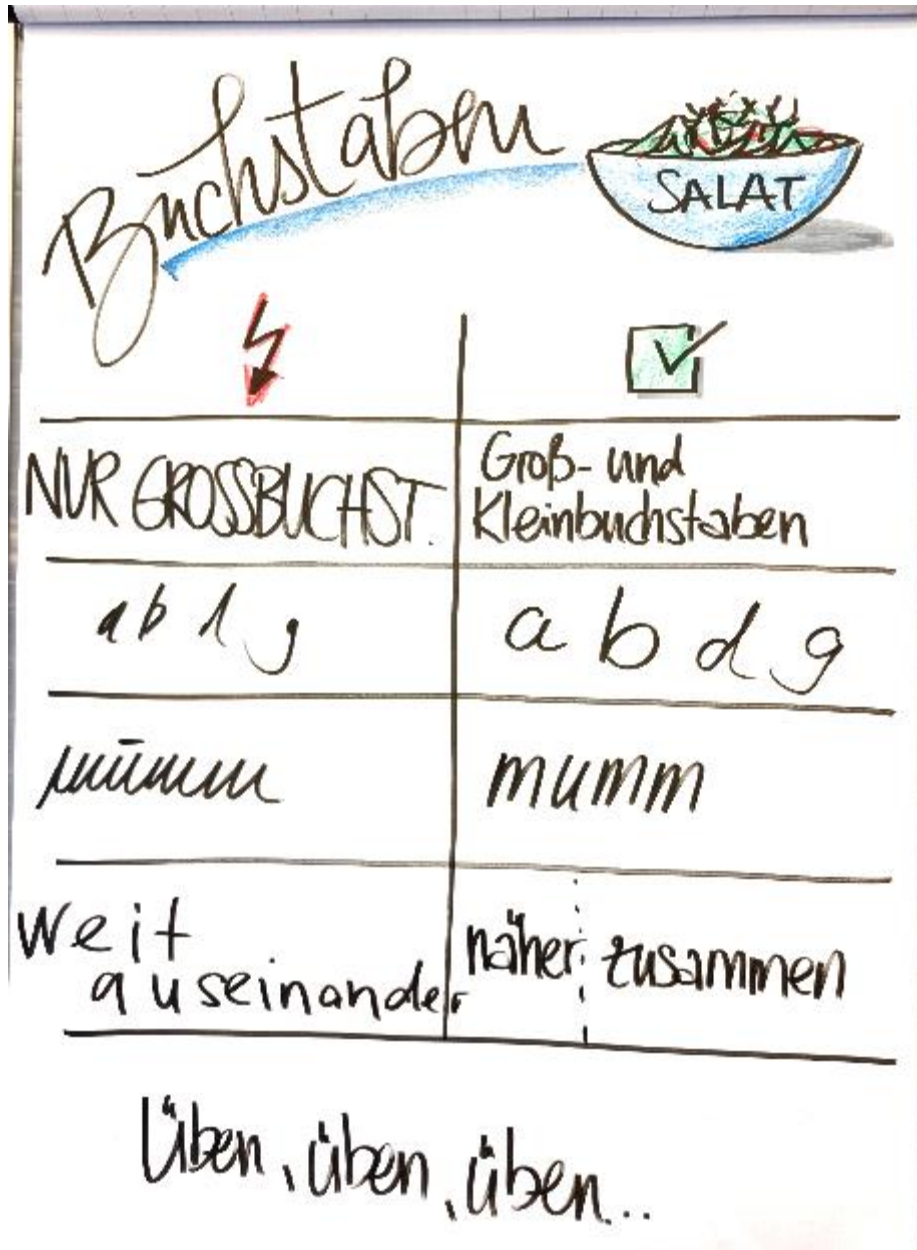 Buchstaben
SALAT
NUR GROSSBUCHST.
Groß- und
Kleinbuchstaben
a b d g
a b d g
mumm
weit
auseinander
näher zusammen
Üben, üben, üben...